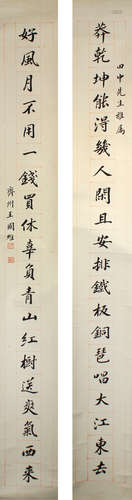 田中先生雅属
莽乾坤能得幾人閑且安排鐵板銅琶唱大江東去
好風月不用一錢買休辜負青山紅樹送爽氣西來
齊州王國維